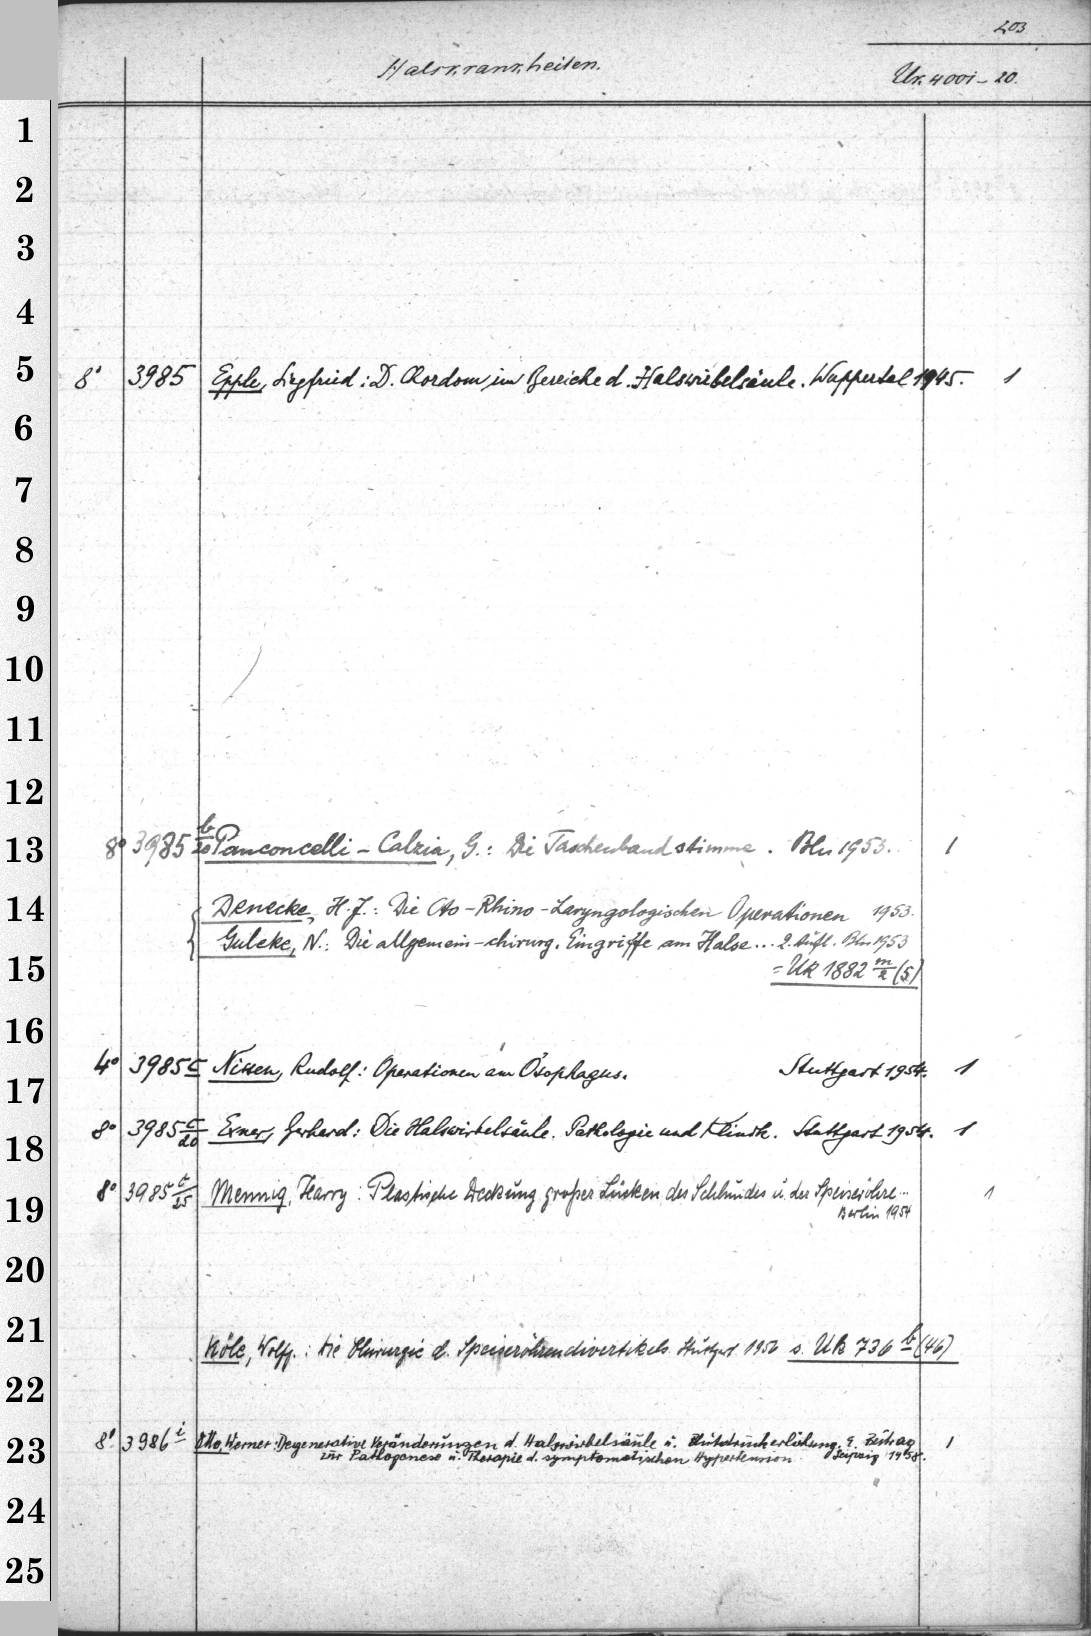 203
Halskrankheiten.
Uk 4001-20.
1
2
3
4
5
8° 3985 Epple, Siegfried: D. Chordom im Bereiche d. Halswirbelsäule. Wuppertal 1945. 1
6
7
8
9
10
11
12
13
8° 3985 b/20 Panconcelli-Calzia, G.: Die Taschenbandstimme. Bln 1953. 1
14
Denecke, H. J.: Die Oto-Rhino-Laryngologischen Operationen 1953.
Guleke, N.: Die allgemein-chirurg. Eingriffe am Halse... 2. Aufl. Bln 1953
15
= Uk 1882 m/2 (5)
16
4° 3985 c Nissen, Rudolf: Operationen am Ösophagus. Stuttgart 1954. 1
17
8° 3985 c/20 Exner, Gerhard: Die Halswirbelsäule. Pathologie und Klinik. Stuttgart 1954. 1
18
8° 3985 c/25 Mennig, Harry: Plastische Deckung großer Lücken des Schlundes u. der Speiseröhre... 1
19
Berlin 1954
20
21
Köle, Wolfg.: Die Chirurgie d. Speiseröhrendivertikels. Stuttgart 1956 s. Uk 736 b (46)
22
8° 3986 i Otto, Werner: Degenerative Veränderungen d. Halswirbelsäule u. Blutdruckerhöhung. E. Beitrag 1
23
zur Pathogenese u. Therapie d. symptomatischen Hypertension. Leipzig 1958.
24
25